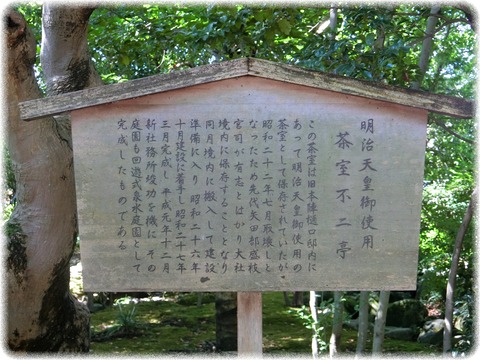 明治天皇御使用
茶室不二亭
この茶室は旧本陣樋口邸内に
あって明治天皇御使用の
茶室として保存されていたが
昭和二十二年七月取壊しと
なったため先代矢田部盛枝
宮司が有志とはかり大社
境内に保存することとなり
同月境内に搬入して建設
準備に入り昭和二十六年
十月建設に着手し昭和二十七年
三月完成し平成元年十二月
新社務所竣功を機にその
庭園も回遊式泉水庭園として
完成したものである